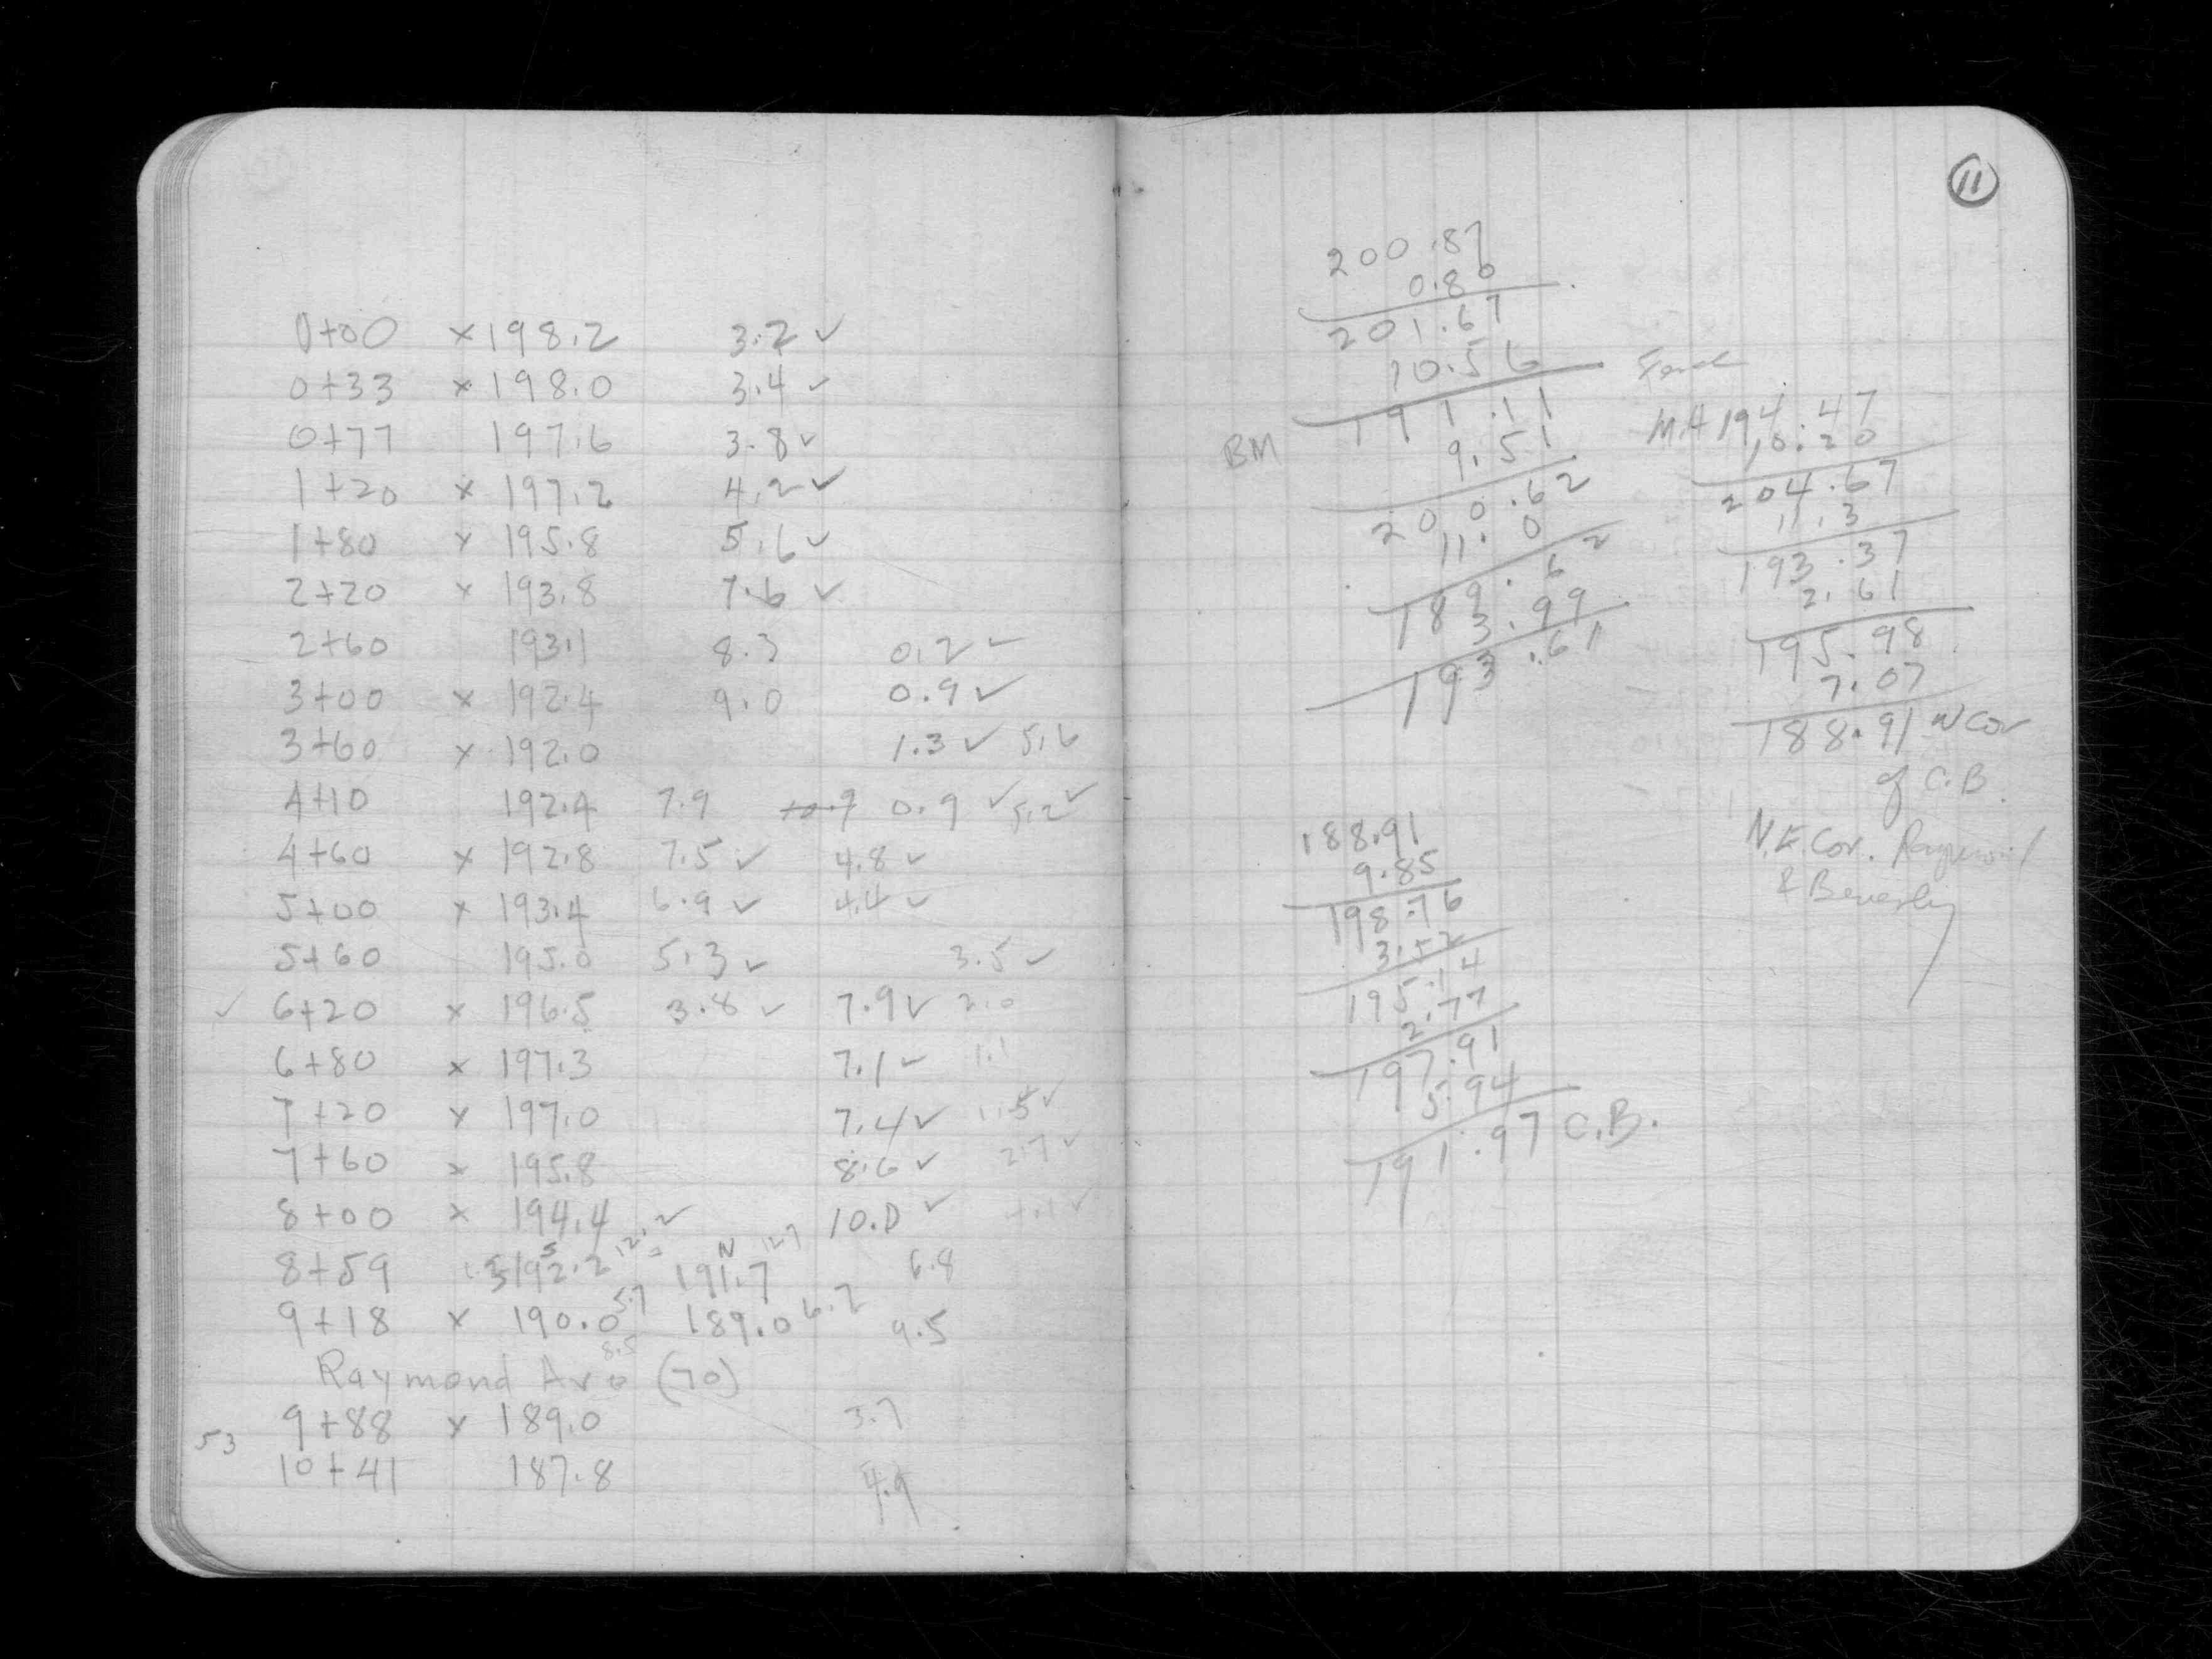 0+00 × 198.2 3.2 ✓
0+33 × 198.0 3.4 ✓
0+77 197.6 3.8 ✓
1+20 × 197.2 4.2 ✓
1+80 × 195.8 5.6 ✓
2+20 × 193.8 7.6 ✓
2+60 193.1 8.3 0.2 ✓
3+00 × 192.4 9.0 0.9 ✓
3+60 × 192.0 1.3 ✓ 5.6
4+10 192.4 7.9 0.9 ✓ 5.2 ✓
4+60 × 192.8 7.5 ✓ 4.8 ✓
5+00 × 193.4 6.9 ✓ 4.4 ✓
5+60 195.0 5.3 ✓ 3.5 ✓
✓ 6+20 × 196.5 3.8 ✓ 7.9 ✓ 2.0
6+80 × 197.3 7.1 ✓ 1.1
7+20 × 197.0 7.4 ✓ 1.5 ✓
7+60 × 195.8 8.6 ✓ 2.7 ✓
8+00 × 194.4 10.0 ✓
S N
8+59 192.2 191.7 12.7 6.8
9+18 × 190.0 5.7 189.0 6.7 9.5
8.5
Raymond Ave (70)
9+88 × 189.0 3.7
53
10+41 187.8 4.9
11
200.87
0.80
201.67
10.56
BM 191.11
9.51
200.62
11.0
189.62
3.99
193.61
MH 194.47
10.20
204.67
11.3
193.37
2.61
195.98
7.07
188.91 N Cor
of C.B.
N.E Cor. Raymond
& Beverly
188.91
9.85
198.76
3.52
195.14
2.77
197.91
5.94
191.97 C.B.